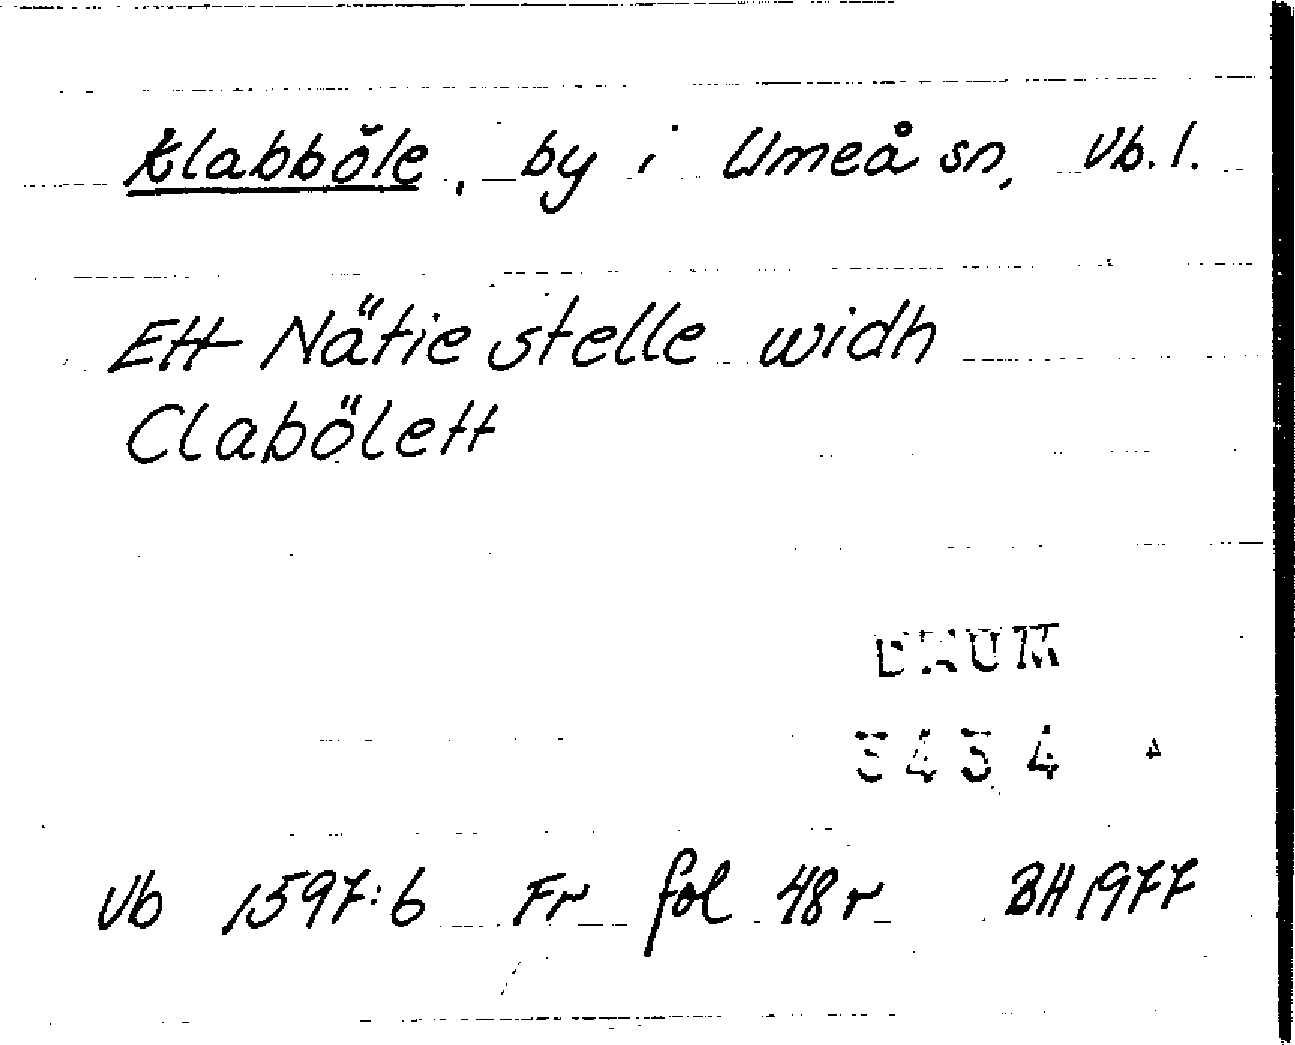 Klabböle, by i Umeå sn, Vb. l.
Ett Nätie stelle widh
Clabölett
DAUM
3434
Vb 1597:6 Fr fol 48 r BH 1977